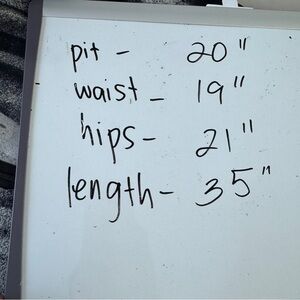 pit - 20"
waist - 19"
hips - 21"
length - 35"